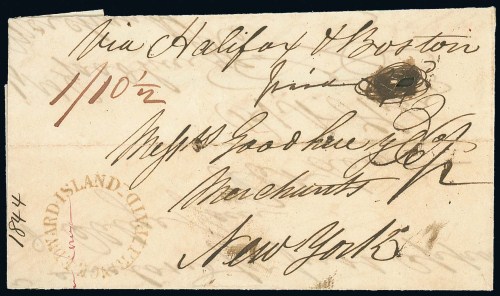 Via Halifax & Boston
1/10 1/2
Paid
Messrs Goodhue & Co
Merchants
New York
1844
PRINCE EDWARD ISLAND